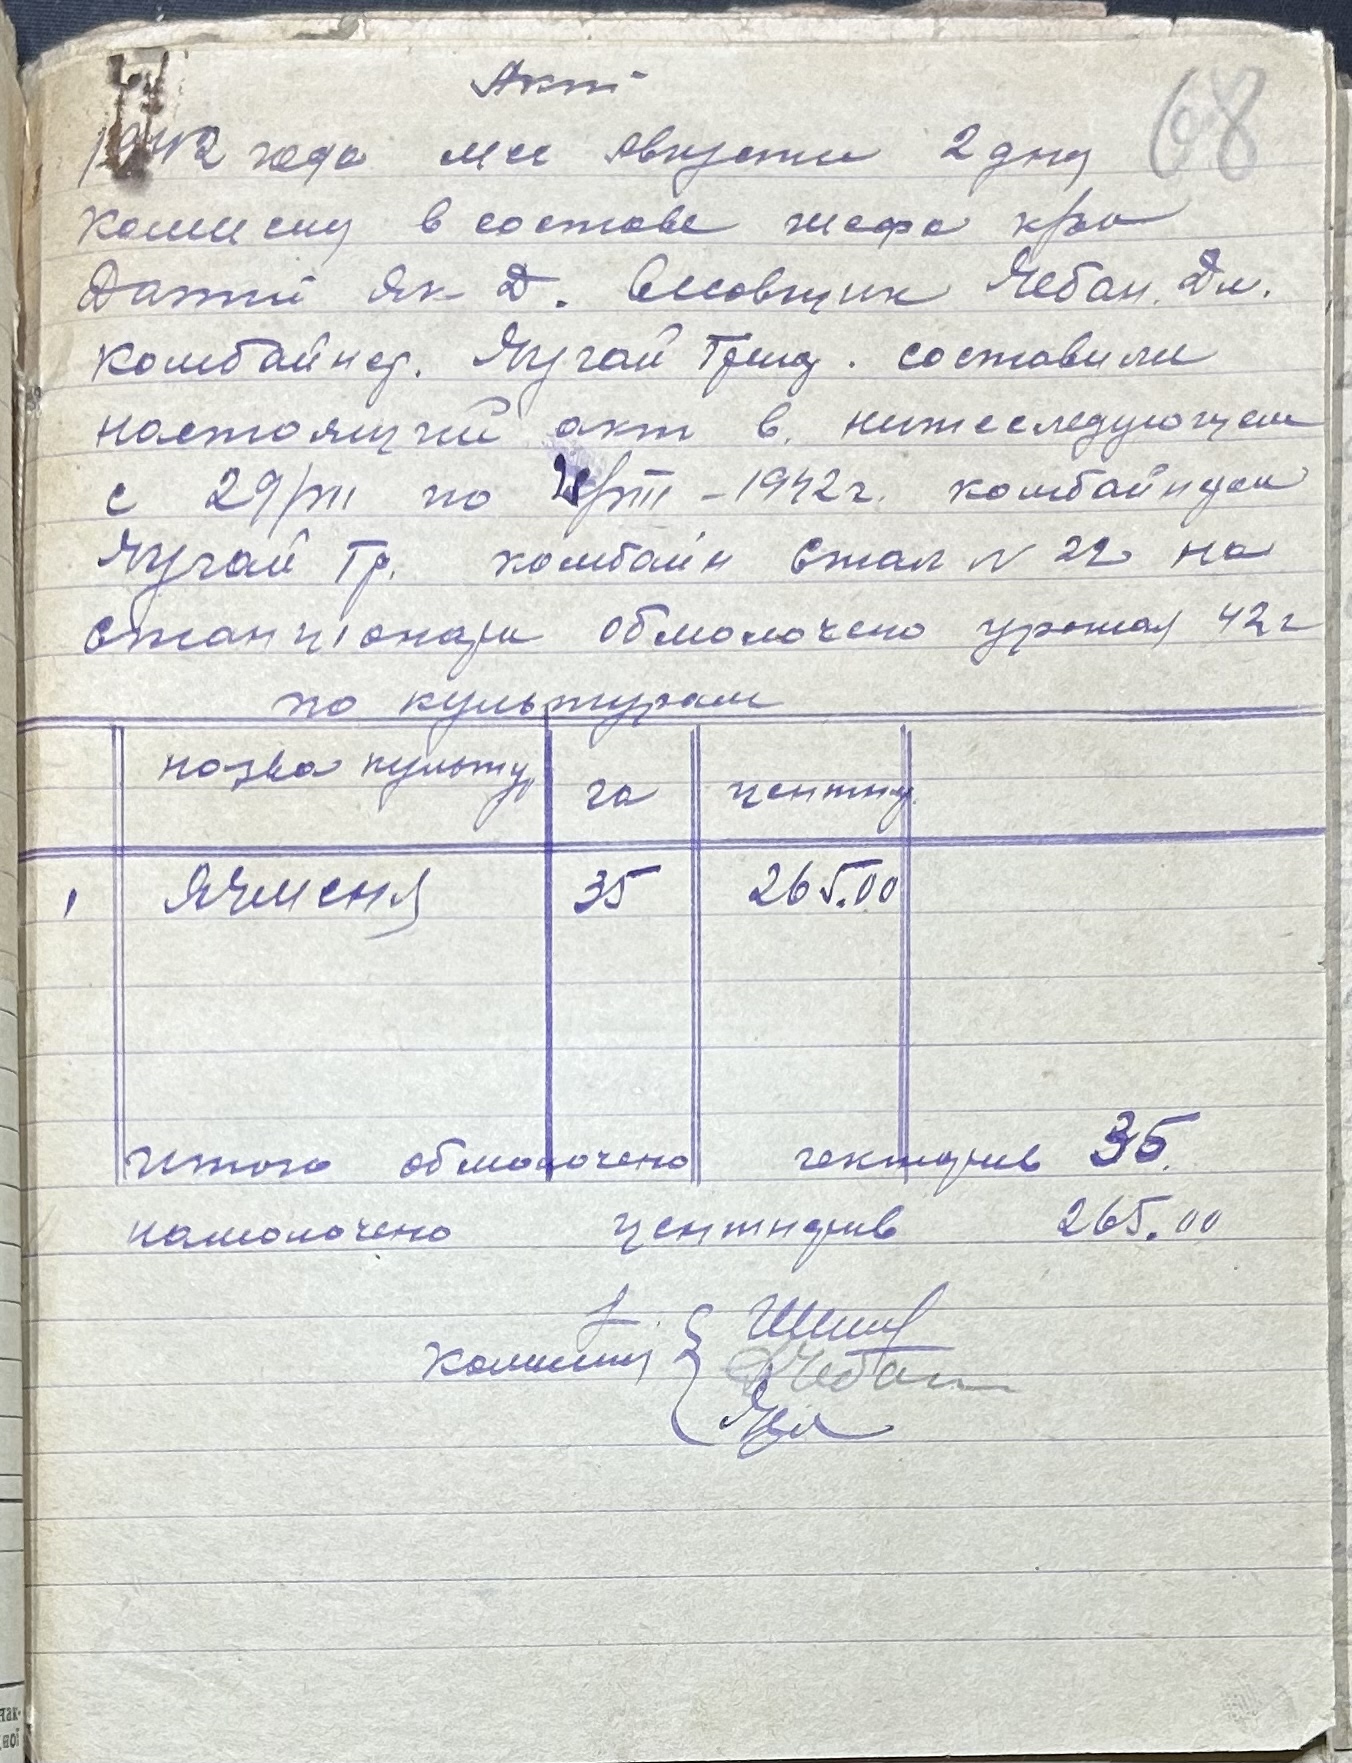 Акт
68
1942 года м-ца августа 2 дня
комисия в составе шефа
Як. Д. Весовщик Чебан. Дм.
комбайнер. Григ. составили
настоящий акт в. нижеследующем
с 29/VII по 2/VIII – 1942 г. комбайнером
Гр. комбайн Сталi N 22 на
стантiонари обмолочено урожая 42 г
по культурам
назва культу, га центну.
1 Ячменя 35 265.00
Итого обмолочено гектарив 35.
намолочено центнарив 265.00
комисия
Чебан